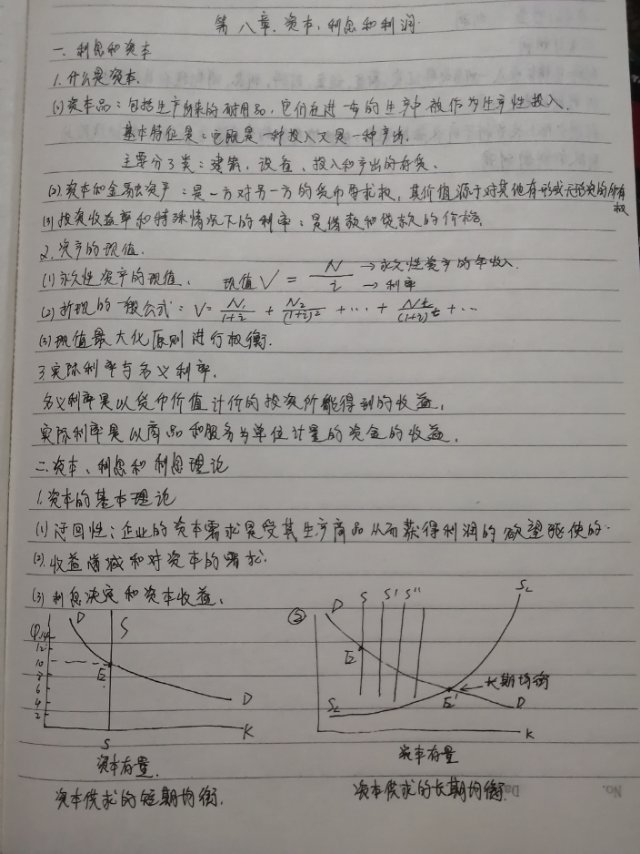 第八章.资本、利息和利润.
一.利息和资本
1.什么是资本.
(1)资本品:包括生产出来的耐用品,它们在进一步的生产中被作为生产性投入.
基本特征是:它既是一种投入又是一种产出.
主要分3类:建筑、设备、投入和产出的存货.
(2)资本的金融资产:是一方对另一方的货币要求权,其价值源于对其他有形或无形资的所有权
(3)投资收益率和特殊情况下的利率:是借款和贷款的价格
2.资产的现值.
(1)永久性资产的现值. 现值V = N/i →永久性资产的年收入. →利率
(2)折现的一般公式:V= N₁/1+i + N₂/(1+i)² + ... + Nt/(1+i)t + ...
(3)现值最大化原则进行权衡.
3.实际利率与名义利率.
名义利率是以货币价值计价的投资所能得到的收益,
实际利率是以商品和服务为单位计量的资金的收益,
二.资本、利息和利润理论
1.资本的基本理论
(1)迂回性:企业的资本需求是受其生产商品从而获得利润的欲望驱使的.
(2).收益递减和对资本的需求.
(3)利息决定和资本收益,
D S
12
10
8
6
4
2
E
D
K
S
资本存量.
资本供求的短期均衡.
② D S S' S'' SL
E
长期均衡
E'
SL
D
K
资本存量
资本供求的长期均衡.
No.
Da